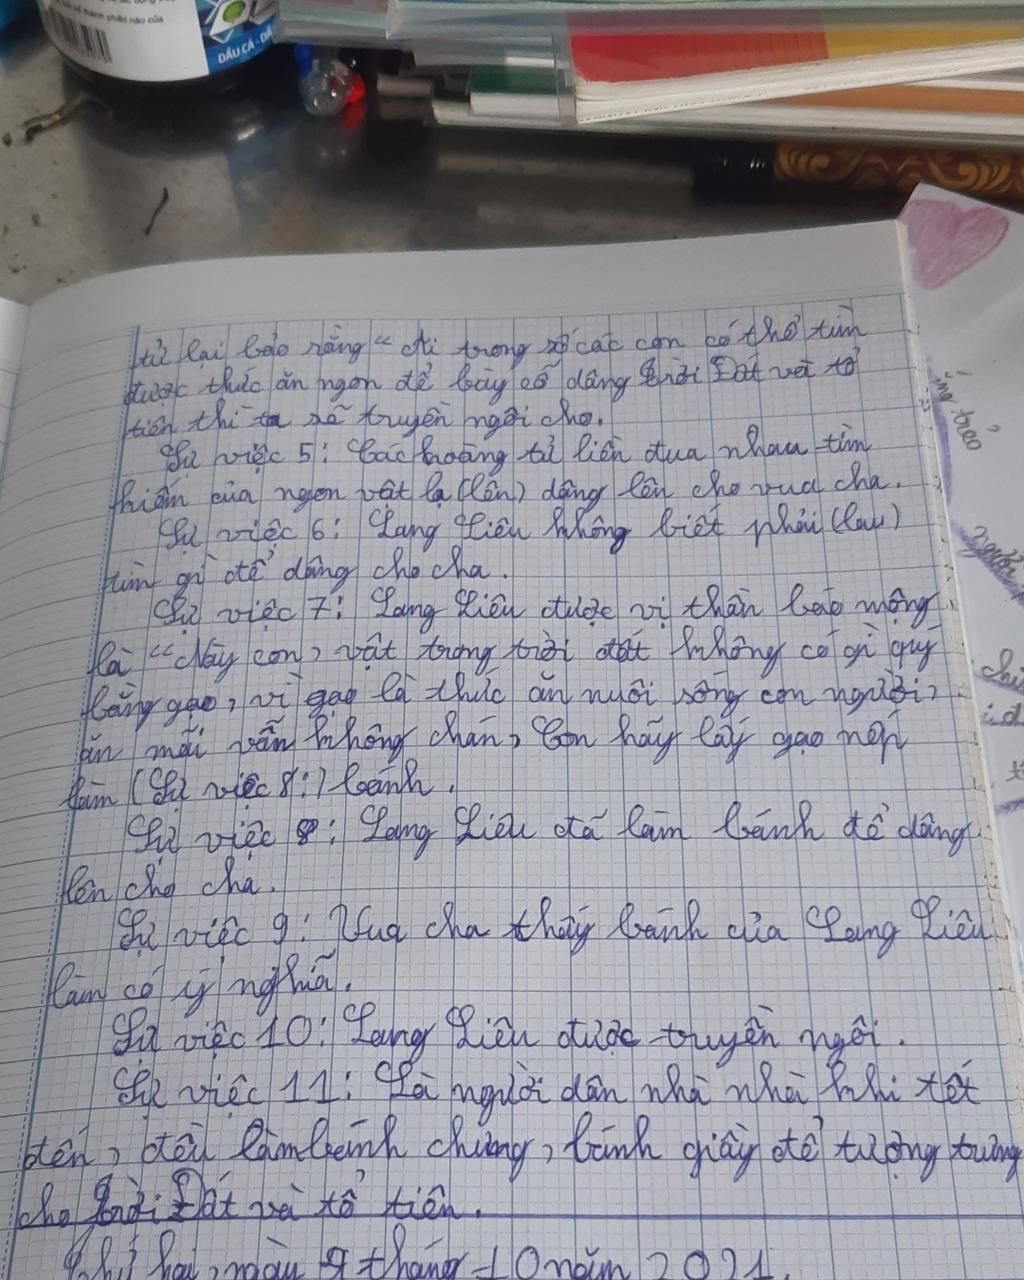 thành phần nào của
DẦU CÁ - ĐA
tử lại bảo rằng "Ai trong số các con có thể tìm
được thức ăn ngon để bày cỗ dâng Trời Đất và tổ
tiên thì ta sẽ truyền ngôi cho.
Sự việc 5: Các hoàng tử liên đua nhau tìm
kiếm của ngon vật lạ (lên) dâng lên cho vua cha.
Sự việc 6: Lang Liêu không biết phải (lau)
tìm gì để dâng cho cha.
Sự việc 7: Lang Liêu được vị thần báo mộng
là "Này con, vật trong trời đất không có gì quý
bằng gạo, vì gạo là thức ăn nuôi sống con người,
ăn mãi vẫn không chán, Con hãy lấy gạo nếp
làm (Sự việc 8:) bánh.
Sự việc 8: Lang Liêu đã làm bánh để dâng
lên cho cha.
Sự việc 9: Vua cha thấy bánh của Lang Liêu
làm có ý nghĩa.
Sự việc 10: Lang Liêu được truyền ngôi.
Sự việc 11: Là người dân nhà nhà khi tết
đến, đều làm bánh chưng, bánh giầy để tượng trưng
cho Trời Đất và tổ tiên.
Thứ hai, ngày 9 tháng 10 năm 2021.
treo
người